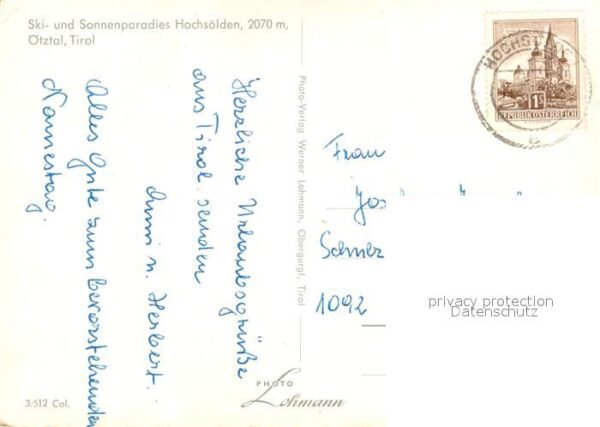 Ski- und Sonnenparadies Hochsölden, 2070 m,
Ötztal, Tirol
Herzliche Urlaubsgrüße
aus Tirol senden
u. Herbert.
Alles Gute zum bevorstehenden
Namestag.
3/512 Col.
Photo-Verlag Werner Lohmann, Obergurgl, Tirol
PHOTO
Lohmann
HOCHS
1S
REPUBLIK ÖSTERREICH
Frau
1092
privacy protection
Datenschutz